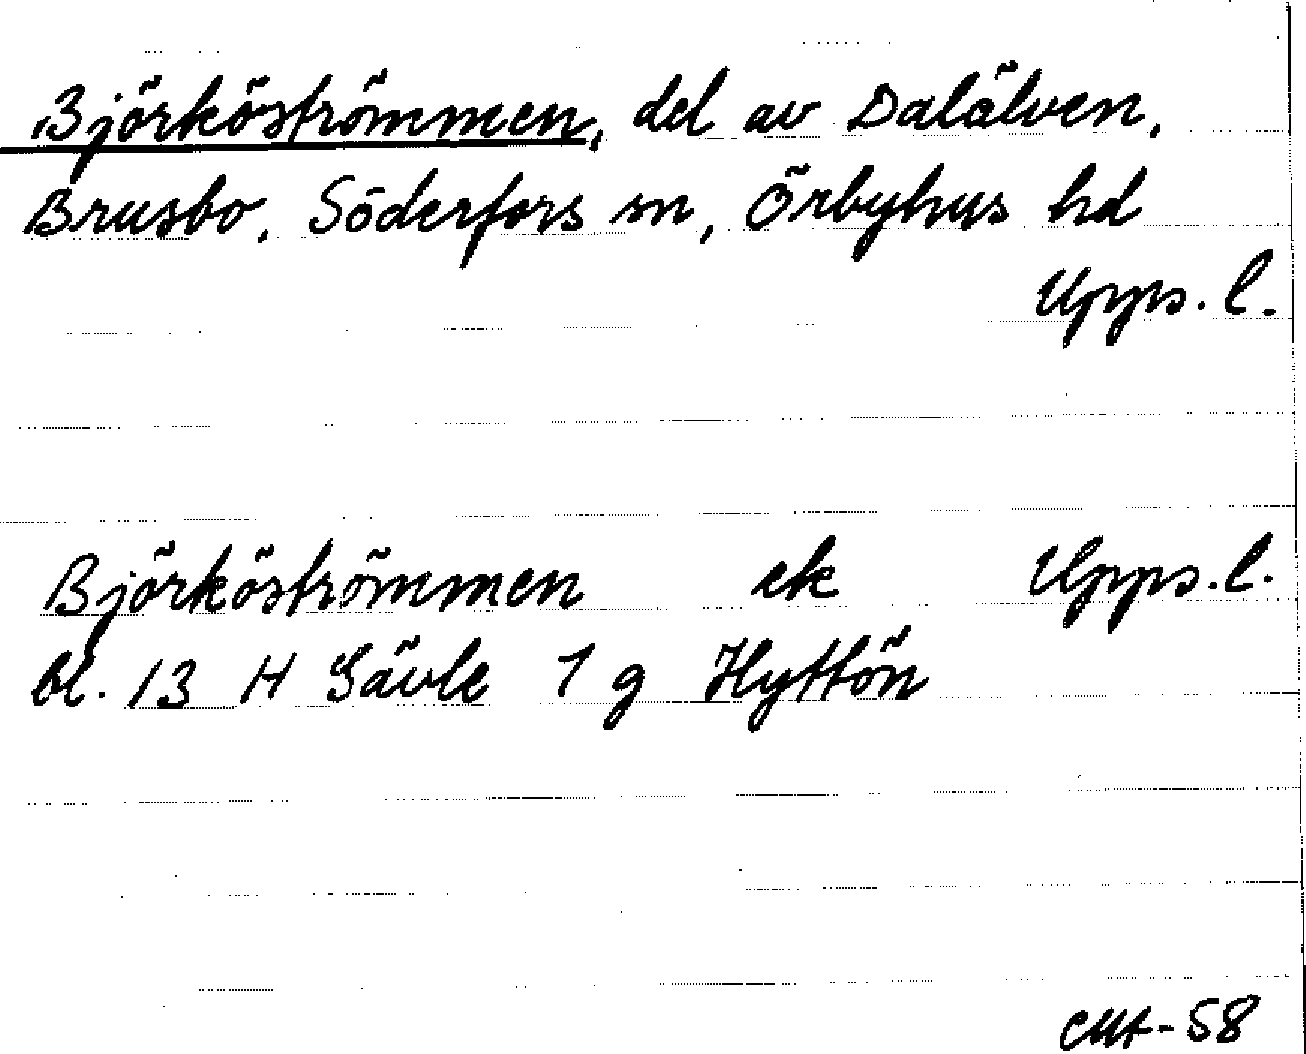 Björköströmmen, del av Dalälven,
Brusbo, Söderfors sn, Örbyhus hd
Upps. l.
Björköströmmen ek Upps. l.
bl. 13 H Gävle 7 g Hyttön
-58